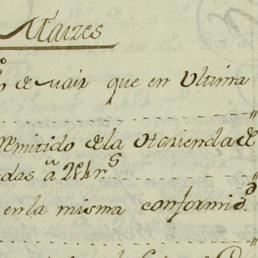 Maizes
de maiz que en Ultima
remitido de la Hazienda de
das â 24 r.s
en la misma conformid.